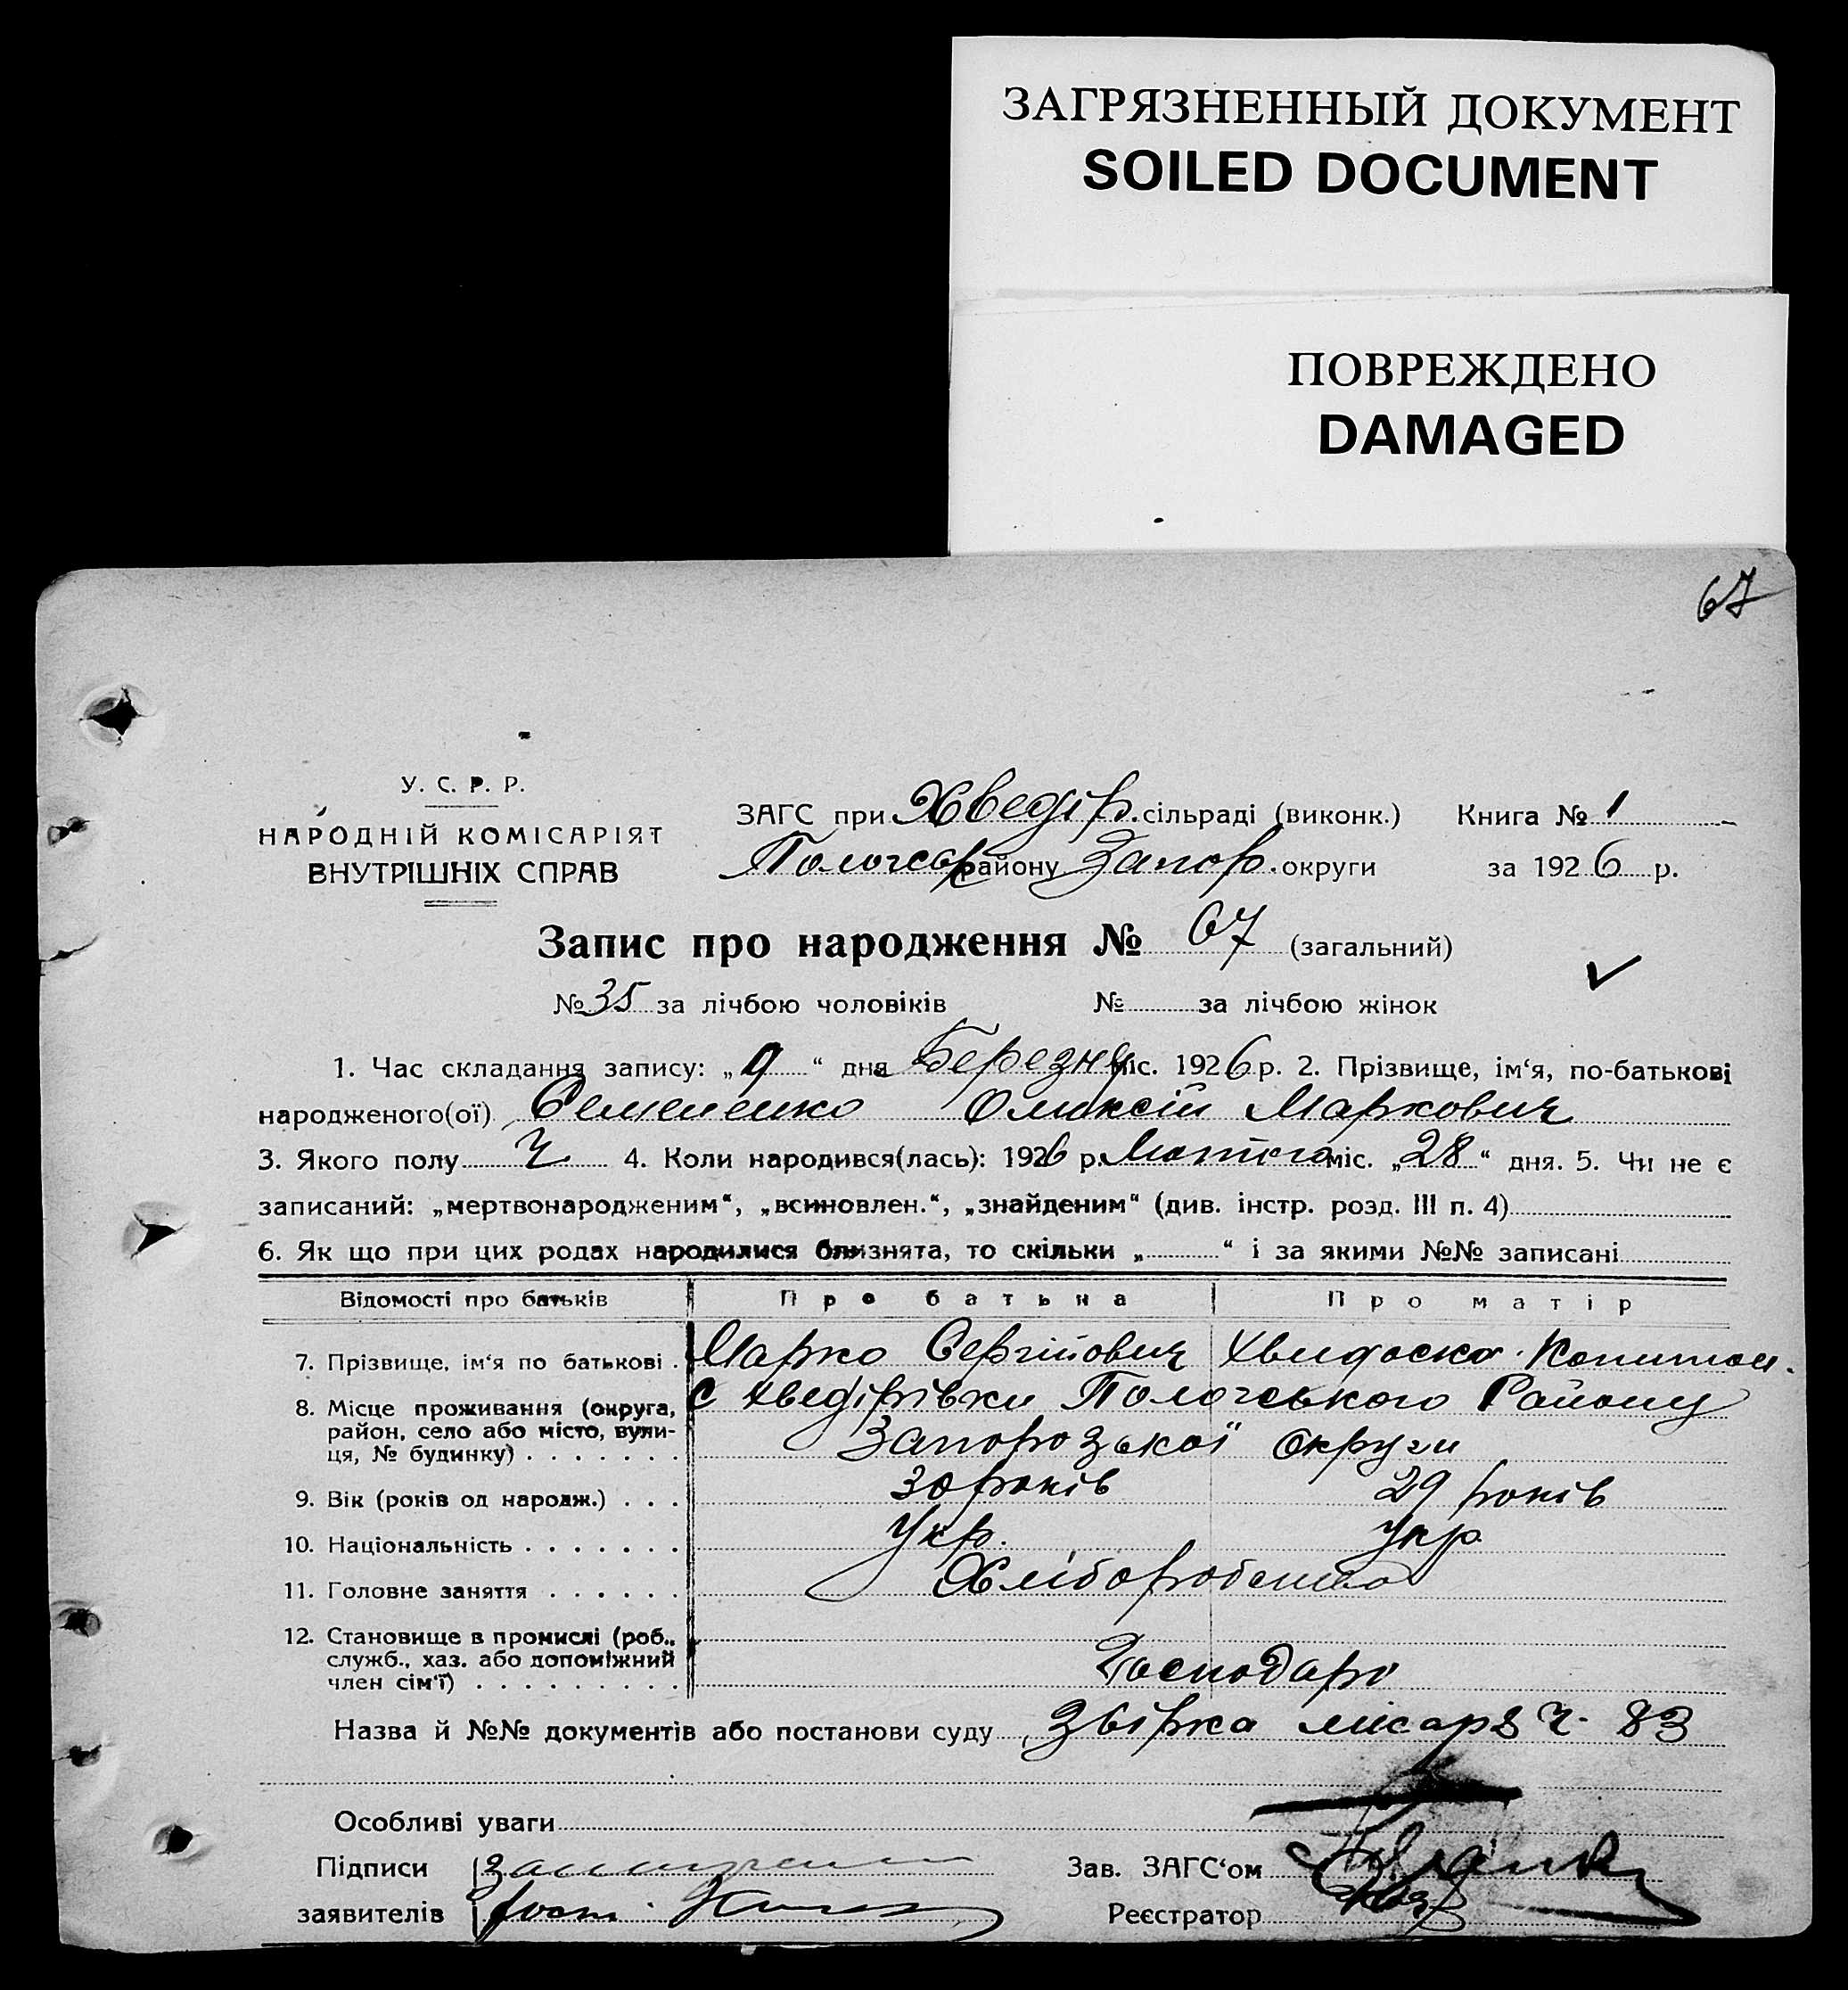 ЗАГРЯЗНЕННЫЙ ДОКУМЕНТ
SOILED DOCUMENT
ПОВРЕЖДЕНО
DAMAGED
67
У. С. Р. Р.
НАРОДНІЙ КОМІСАРІЯТ
ВНУТРІШНІХ СПРАВ
ЗАГС при Хведір. сільраді (виконк.) Книга № 1
району Запор. округи за 1926 р.
Запис про народження № 67 (загальний)
№ 35 за лічбою чоловіків № за лічбою жінок
1. Час складання запису: „9“ дня Березня міс. 1926 р. 2. Прізвище, ім‘я, по-батькові
народженого(ої) Семененко Олексій Маркович
3. Якого полу Ч 4. Коли народився(лась): 1926 р. Лютого міс. „28“ дня. 5. Чи не є
записаний: „мертвонародженим“, „всиновлен.“, „знайденим“ (див. інстр. розд. III п. 4)
6. Як що при цих родах народилися близнята, то скільки „ “ і за якими №№ записані
Відомості про батьків Про батька Про матір
7. Прізвище, ім‘я по батькові . Марко Сергійович
8. Місце проживання (округа, с Хведірівки Пологського Району
район, село або місто, вули-
ця, № будинку) . . . . . . . Запорозької Округи
9. Вік (років од народж.) . . . 30 років 29 років
10. Національність . . . . . . . Укр. Укр.
11. Головне заняття . . . . . . Хліборобство
12. Становище в промислі (роб.,
служб., хаз. або допоміжний
член сім‘ї) . . . . . . . . . Господарі
Назва й №№ документів або постанови суду Ч. 83
Особливі уваги
Підписи Зав. ЗАГС‘ом
заявителів Реєстратор